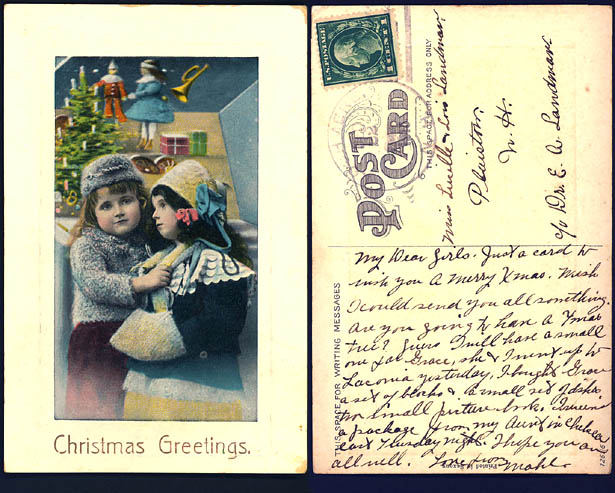 Christmas Greetings.
U.S. POSTAGE
POST CARD
THIS SPACE FOR ADDRESS ONLY
Miss Lucille & Lois Landman
Plaistow,
N. H.
c/o Dr. E. A. Landman
THIS SPACE FOR WRITING MESSAGES
My Dear Girls. Just a card to
wish you a Merry Xmas. Wish
I could send you all something.
Are you going to have a Xmas
tree? Guess I will have a small
one for Grace, she & I went up to
Laconia yesterday, I bought Grace
a set of blocks & a small set of dishes,
two small picture books. I received
a package from my Aunt in Chelsea
last Tuesday night. I hope you are
all well. Love from
Mable.
Printed in Saxony